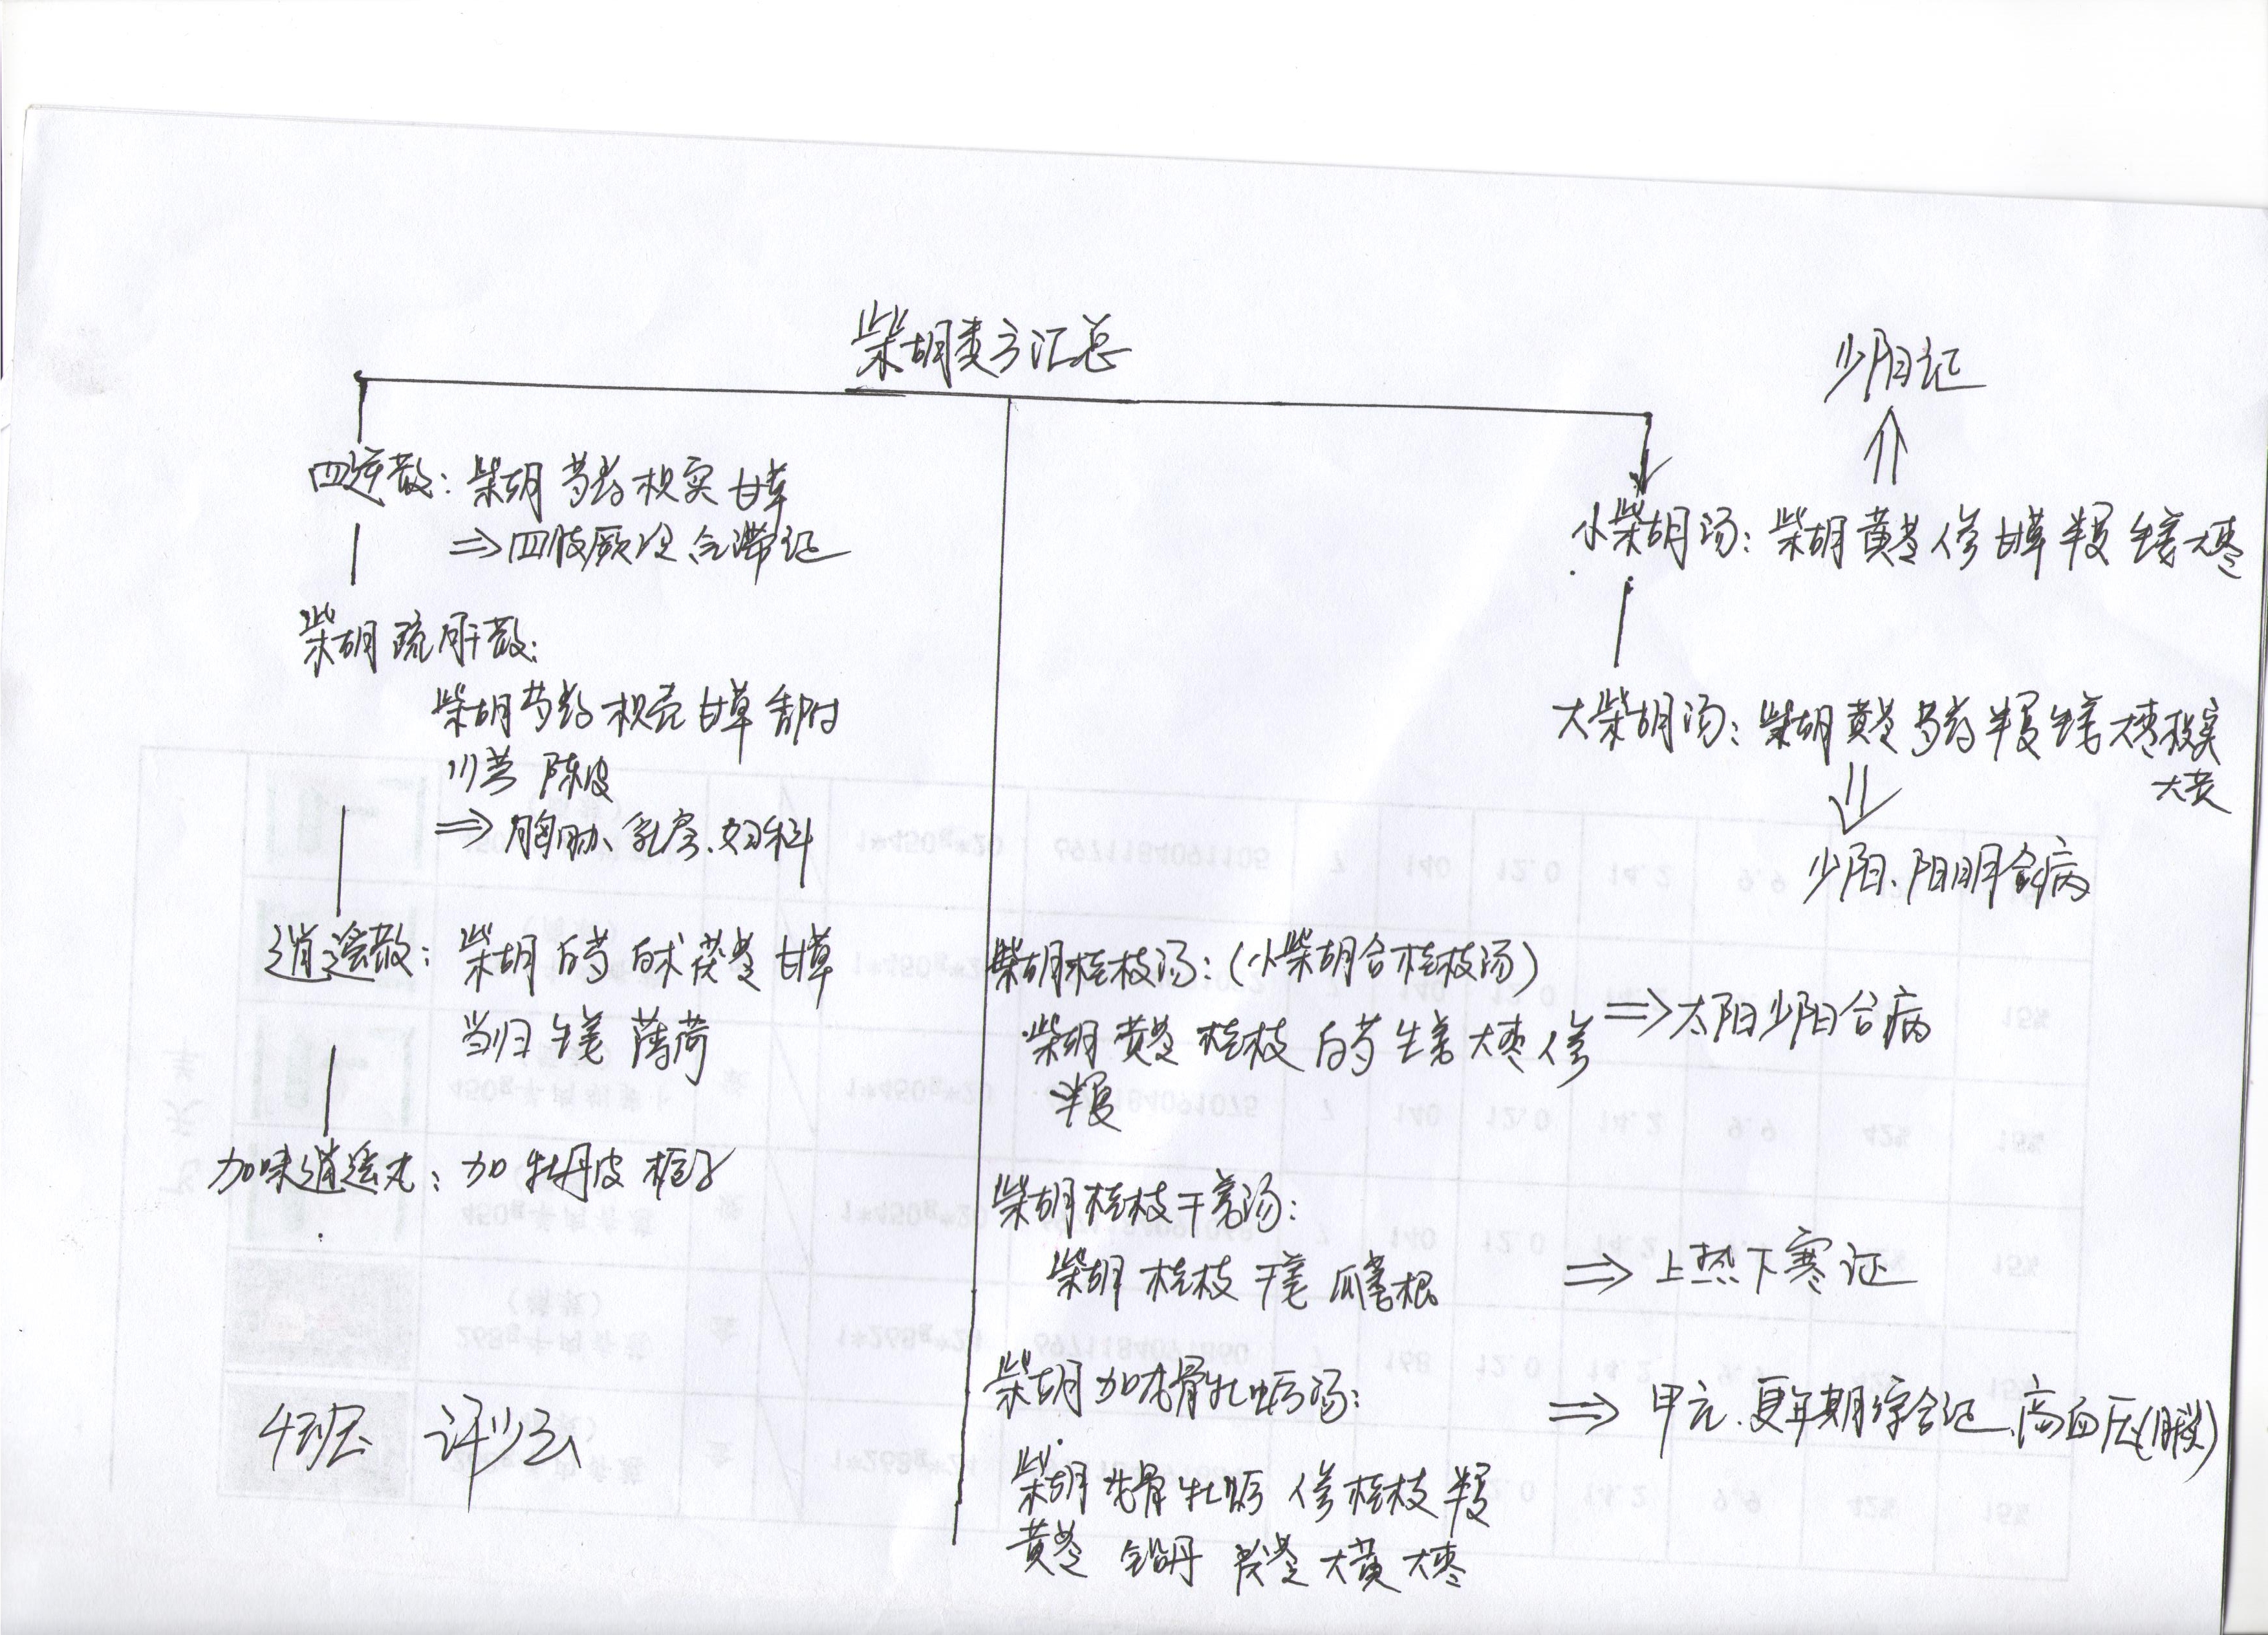 柴胡类方汇总
四逆散：柴胡 芍药 枳实 甘草
⇒四肢厥冷 气滞证
柴胡疏肝散：
柴胡 芍药 枳壳 甘草 香附
川芎 陈皮
⇒胸胁、乳房、妇科
逍遥散：柴胡 白芍 白术 茯苓 甘草
当归 生姜 薄荷
加味逍遥丸：加 牡丹皮 栀子
4班
少阳证
小柴胡汤：柴胡 黄芩 人参 甘草 半夏 生姜 大枣
大柴胡汤：柴胡 黄芩 芍药 半夏 生姜 大枣 枳实
大黄
少阳、阳明合病
柴胡桂枝汤：（小柴胡合桂枝汤）
⇒太阳少阳合病
柴胡 黄芩 桂枝 白芍 生姜 大枣 人参
半夏
柴胡桂枝干姜汤：
柴胡 桂枝 干姜 瓜蒌根
⇒上热下寒证
柴胡加龙骨牡蛎汤：
⇒甲亢、更年期综合证、高血压
柴胡 龙骨 牡蛎 人参 桂枝 半夏
黄芩 铅丹 茯苓 大黄 大枣